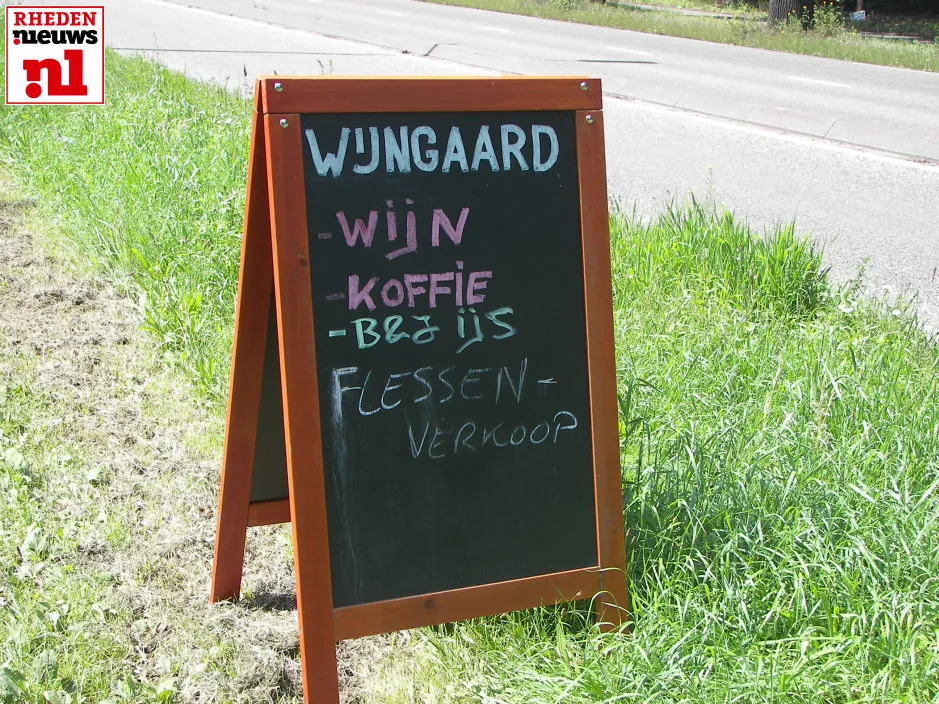 RHEDEN
nieuws
.nl
WIJNGAARD
- WIJN
- KOFFIE
- B&J IJS
FLESSEN-
VERKOOP